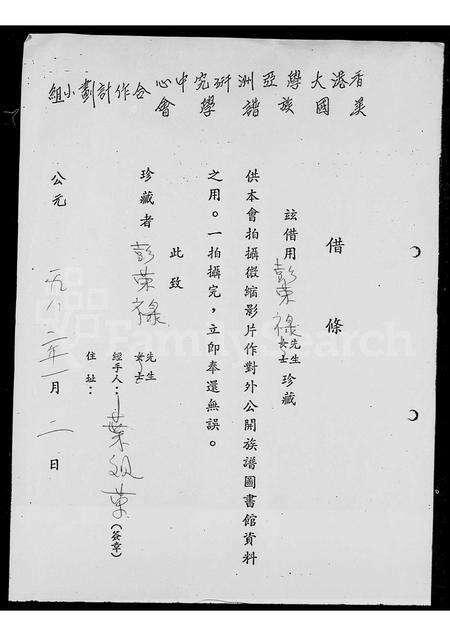 香港大學亞洲研究中心
美國族譜學會
合作計劃小組
借條
茲借用彭榮祿先生女士珍藏
供本會拍攝微縮影片作對外公開族譜圖書館資料
之用。一拍攝完，立即奉還無誤。
此致
珍藏者 彭榮祿 先生女士
經手人：葉（簽章）
住址：
公元 一九八二年一月二日
FamilySearch